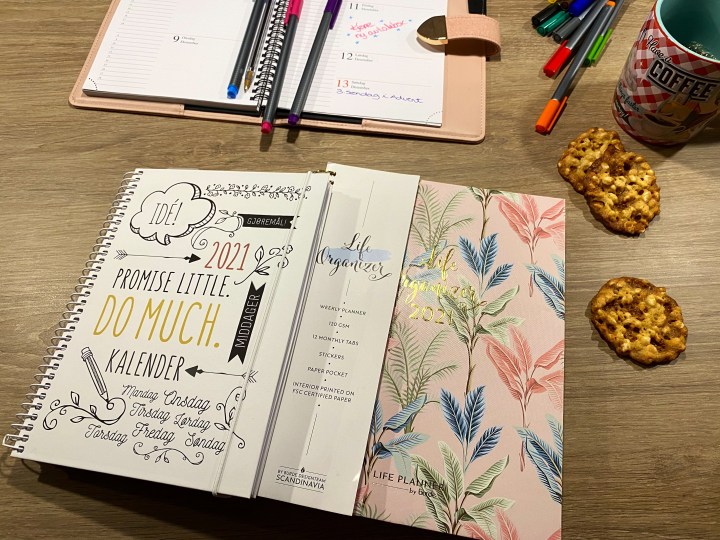 9
11
Kjøpe
ny
12
13
3. søndag i Advent
COFFEE
IDÉ!
GJØREMÅL!
2021
PROMISE LITTLE.
DO MUCH.
MIDDAGER
KALENDER
Mandag Onsdag
Tirsdag Lørdag
Torsdag Fredag Søndag
Life
Organizer
WEEKLY PLANNER
120 GSM
12 MONTHLY TABS
STICKERS
PAPER POCKET
INTERIOR PRINTED ON
FSC CERTIFIED PAPER
BY BURDE DESIGNTEAM
SCANDINAVIA
Life
Organizer
2021
LIFE PLANNER
by Burde